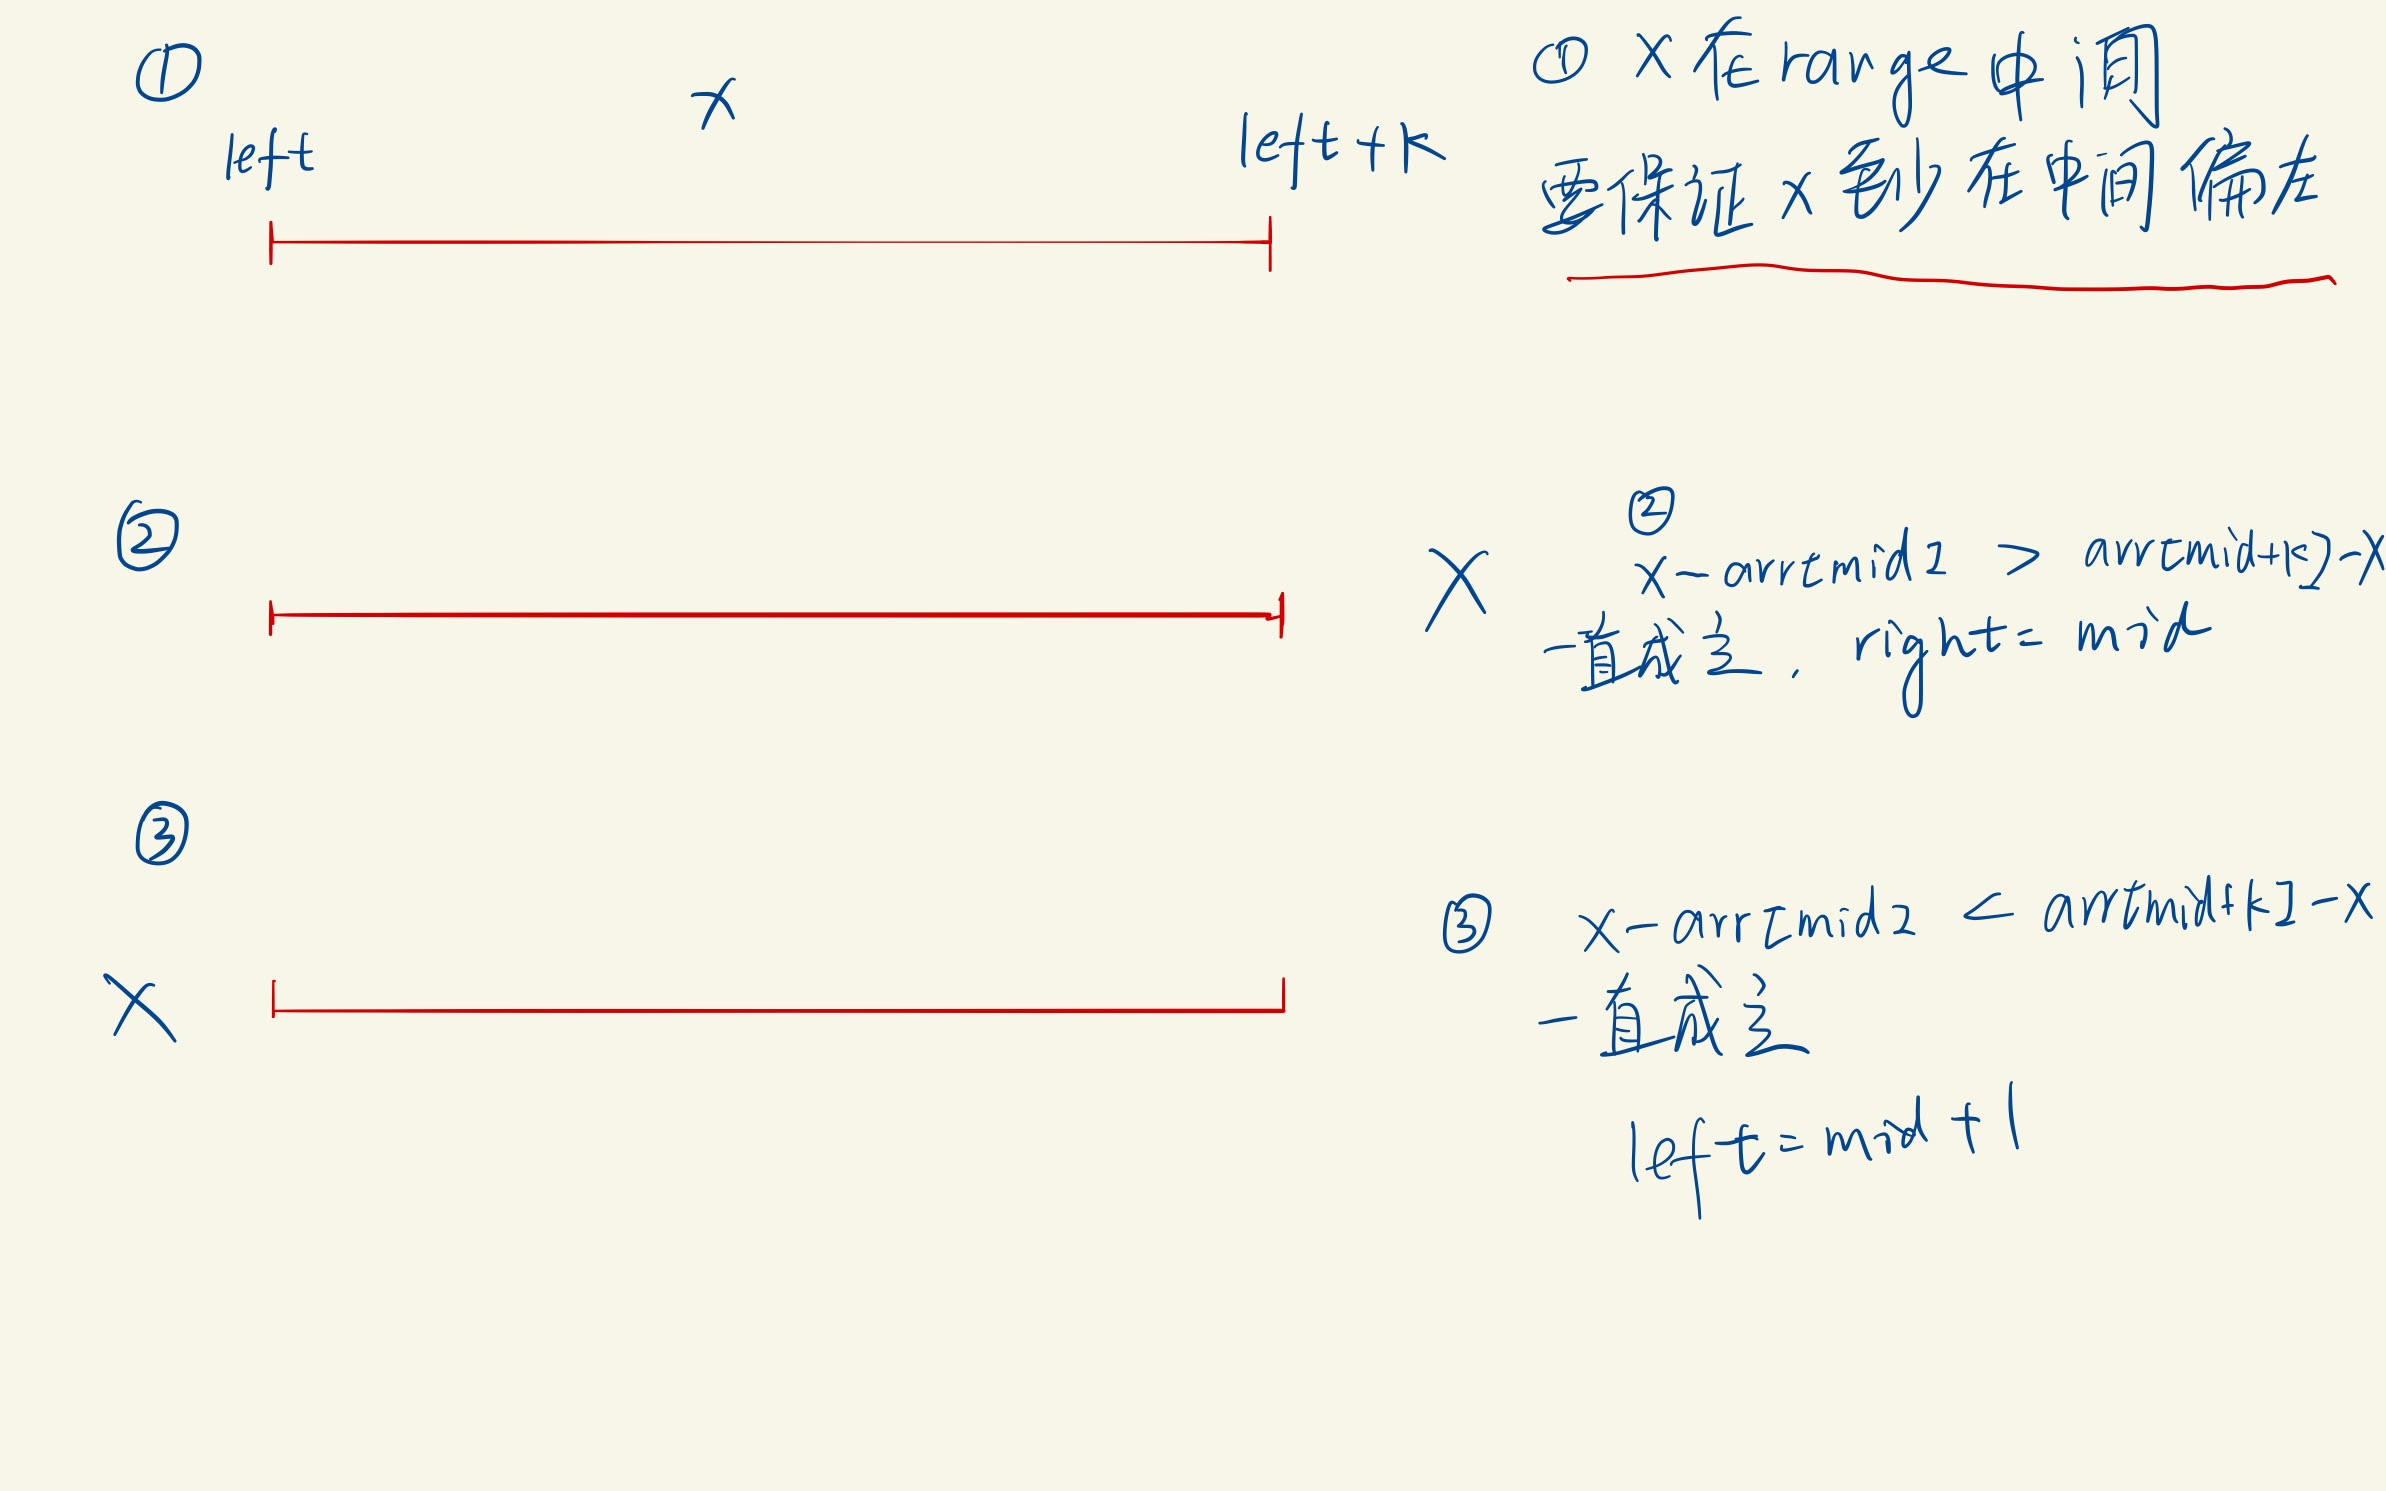 ①
x
left
left+k
① x在range中间
要保证x至少在中间偏左
②
X
②
x-arr[mid] > arr[mid+k]-x
一直成立, right=mid
③
X
③ x-arr[mid] < arr[mid+k]-x
一直成立
left=mid+1